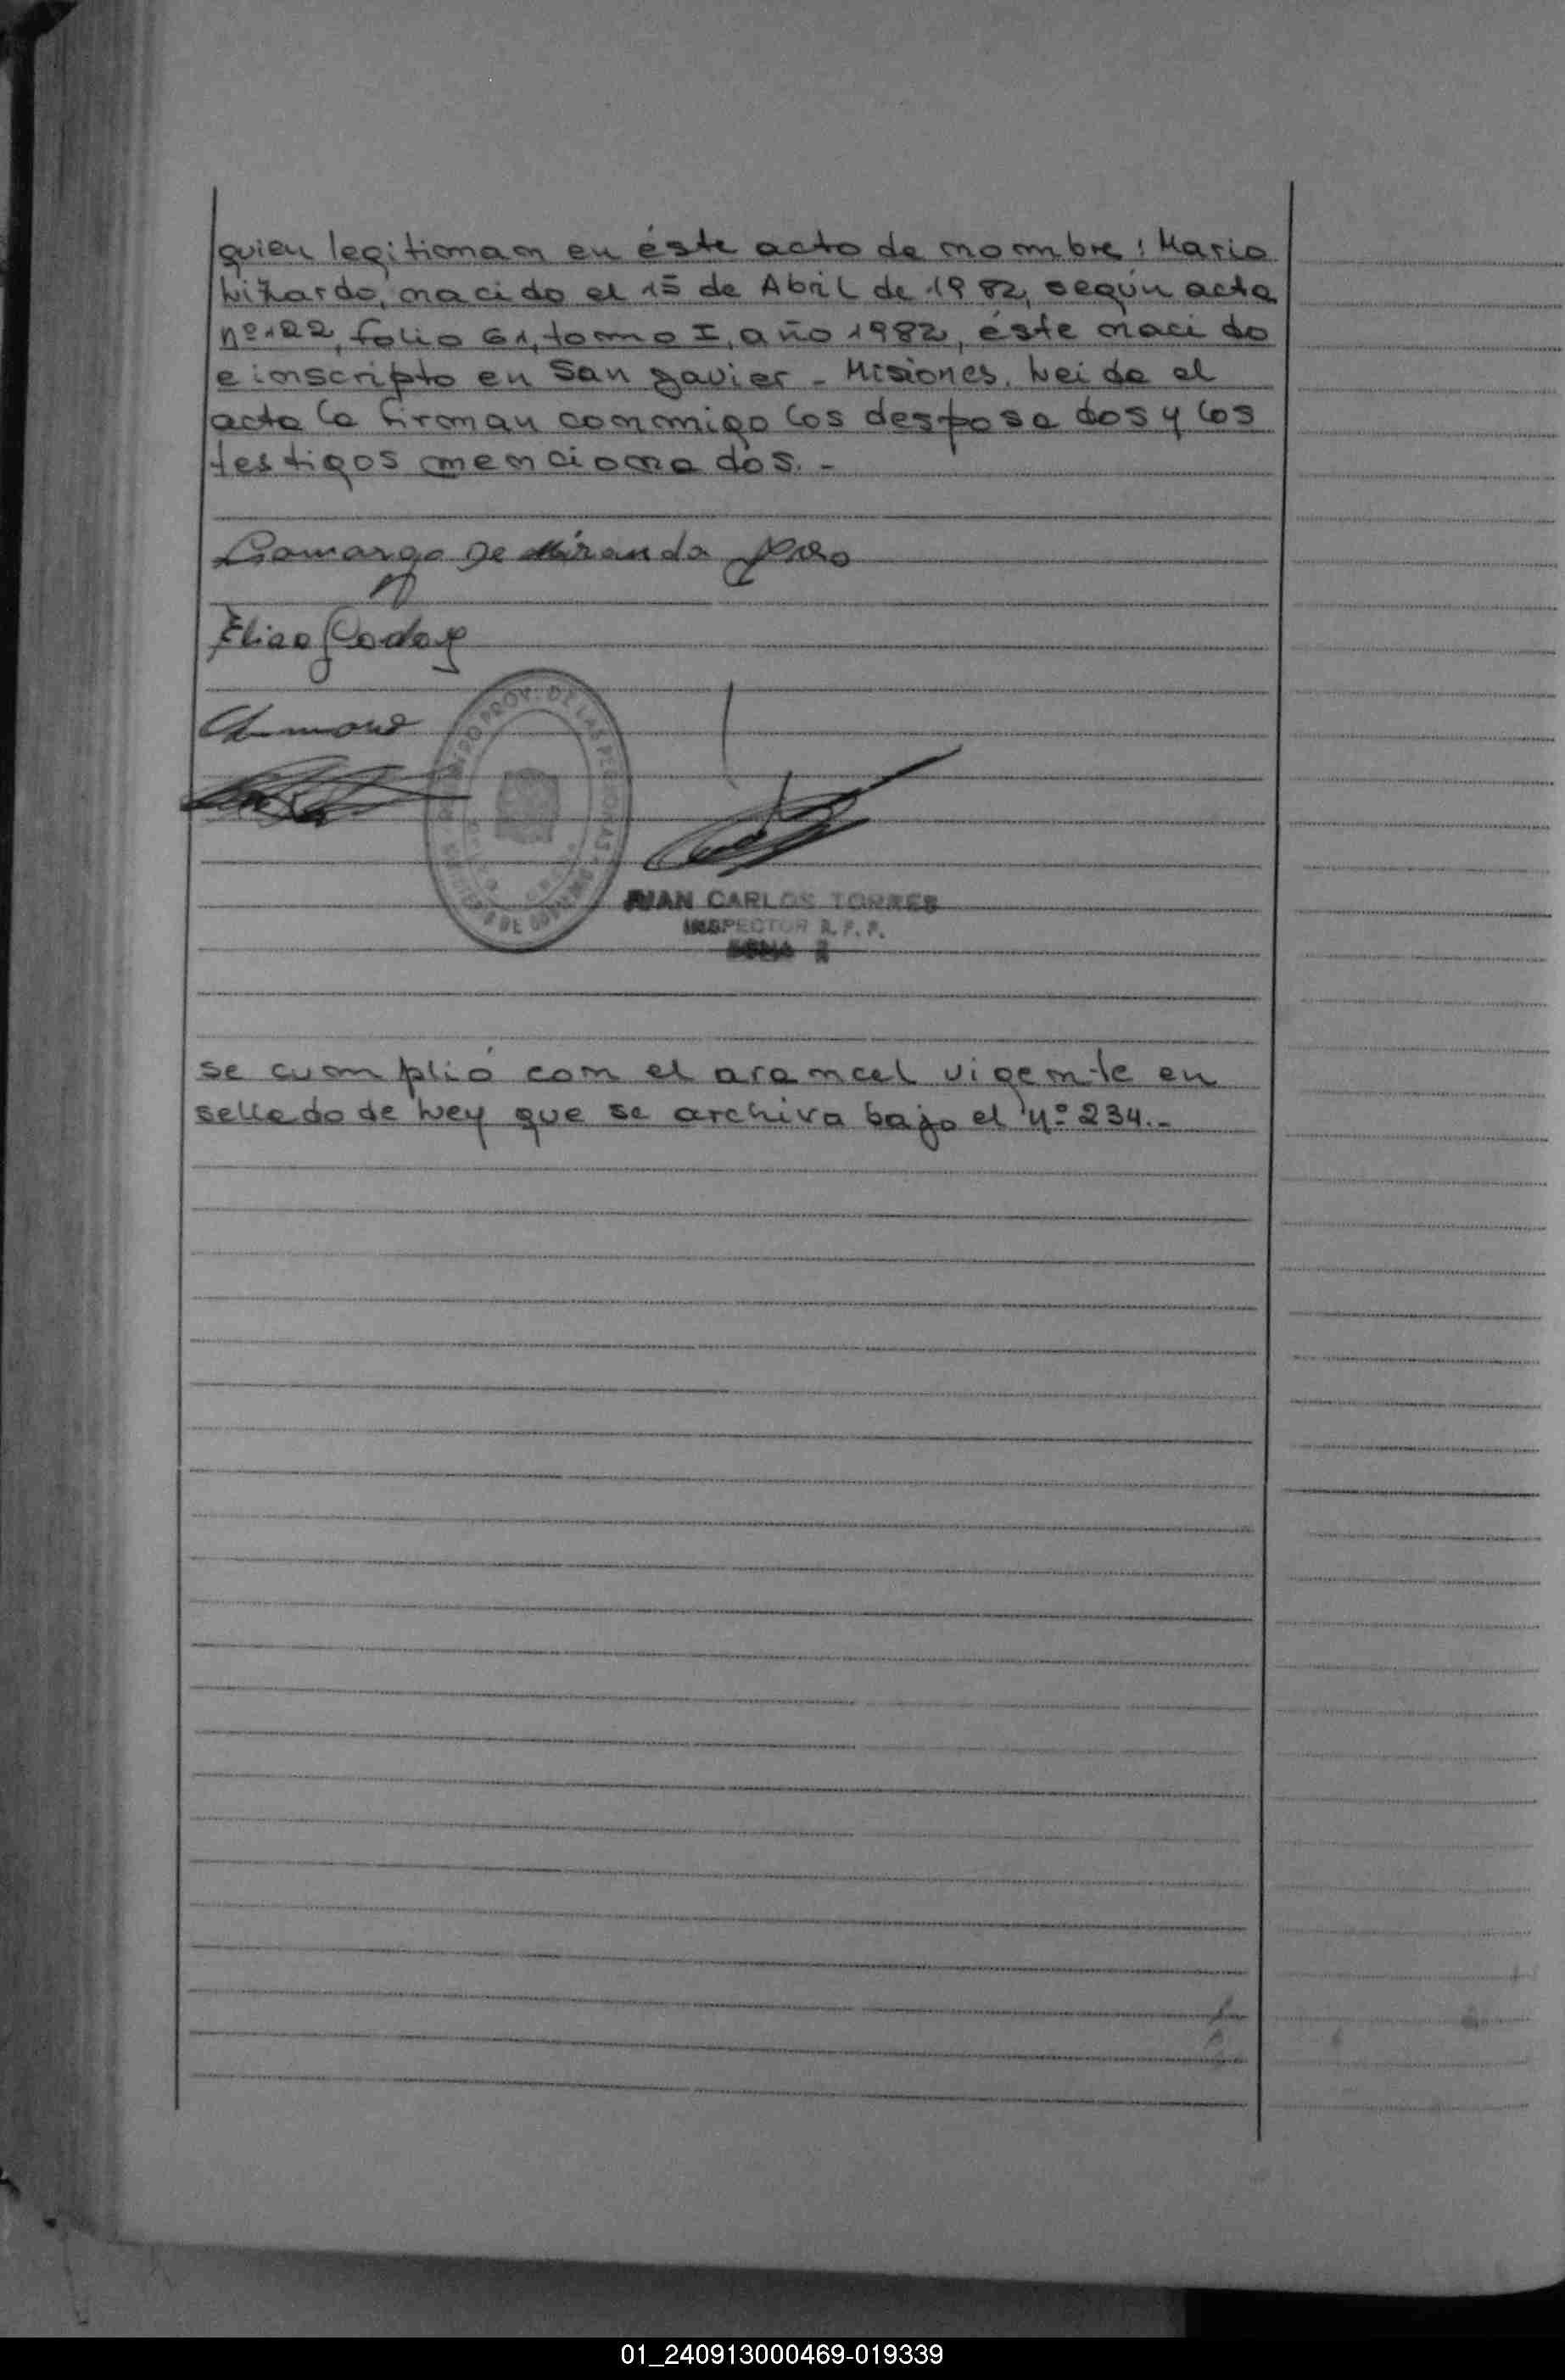 quien legitiman en éste acto de nombre: Mario
Lizardo, nacido el 15 de Abril de 1982, según acta
nº 122, folio 61, tomo I, año 1982, éste nacido
e inscripto en San Javier - Misiones. Leida el
acta la firman conmigo los desposados y los
testigos mencionados. -
Camargo De Miranda
Elisa Godoy
PROV. DE LAS PERSONAS
DE GOBIERNO
JUAN CARLOS TORRES
INSPECTOR R. P. P.
ZONA
se cumplió con el arancel vigente en
sellado de Ley que se archiva bajo el nº 234.-
01_240913000469-019339